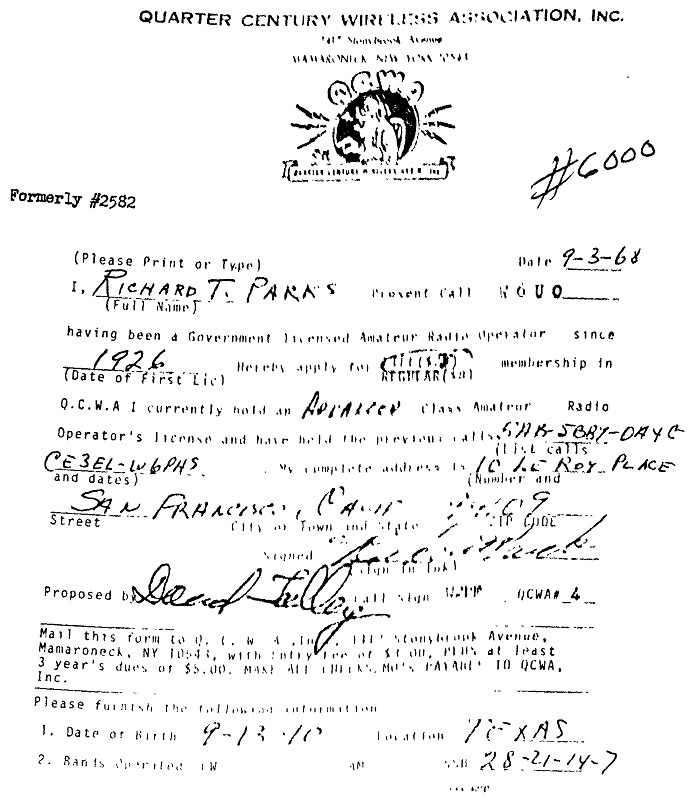 QUARTER CENTURY WIRELESS ASSOCIATION, INC.
Stonybrook Avenue
MAMARONECK NEW YORK 10543
QCWA
QUARTER CENTURY WIRELESS ASS'N. INC
#6000
Formerly #2582
(Please Print or Type) Date 9-3-68
I, RICHARD T. PARKS Present Call K6UO
(Full Name)
having been a Government licensed Amateur Radio Operator since
1926 Hereby apply for membership in
(Date of First Lic) REGULAR($8)
Q.C.W.A I currently hold an ADVANCED Class Amateur Radio
Operator's license and have held the previous calls
(List calls
CE3EL-W6PHS . My complete address is 10 LE ROY PLACE
and dates) (Number and
SAN FRANCISCO, CALIF
Street City or Town and State ZIP CODE
Signed
(Sign in Ink)
Proposed by Call Sign QCWA# 4
Mail this form to Q. C. W. A .,Inc., Stonybrook Avenue,
Mamaroneck, NY 10543, with Entry fee of $1.00, PLUS at least
3 year's dues of $5.00. MAKE ALL CHECKS, MO's PAYABLE TO QCWA,
Inc.
Please furnish the following information
1. Date of Birth 9-13-10 Location TEXAS
2. Bands Operated CW AM SSB 28-21-14-7